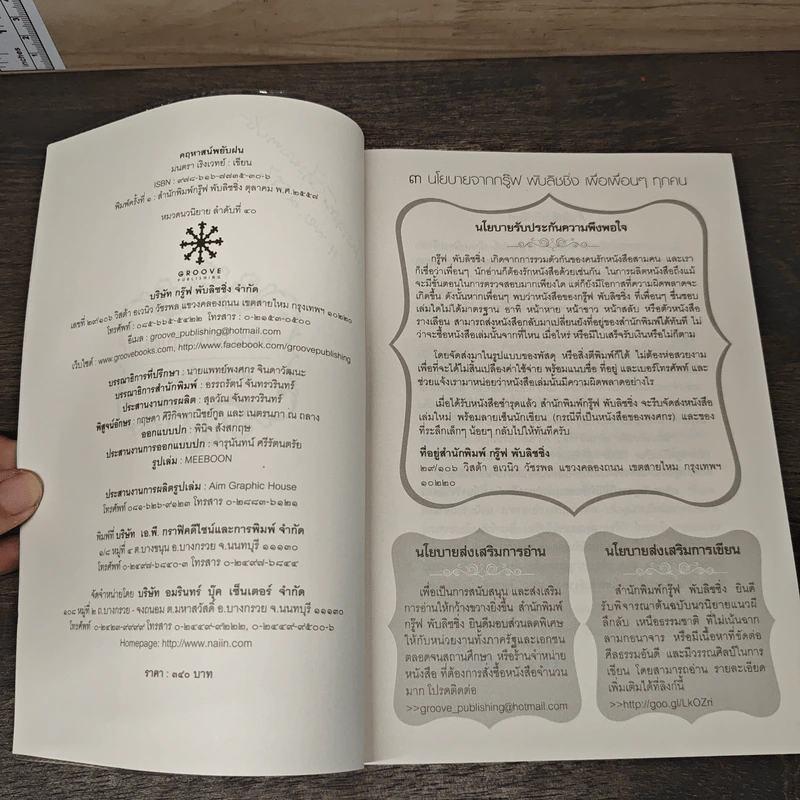 คฤหาสน์พยับฝน
มนตรา เริงเวทย์ : เขียน
ISBN : ๙๗๘-๖๑๖-๗๗๓๕-๓๐-๖
พิมพ์ครั้งที่ ๑ : สำนักพิมพ์กรู๊ฟ พับลิชชิ่ง ตุลาคม พ.ศ.๒๕๕๗
หมวดนวนิยาย ลำดับที่ ๔๐
GROOVE
PUBLISHING
บริษัท กรู๊ฟ พับลิชชิ่ง จำกัด
เลขที่ ๒๙/๑๐๖ วิสต้า อเวนิว วัชรพล แขวงคลองถนน เขตสายไหม กรุงเทพฯ ๑๐๒๒๐
โทรศัพท์ : ๐๘๕-๖๖๕-๕๔๒๒ โทรสาร : ๐-๒๑๕๓-๐๕๐๐
อีเมล : groove_publishing@hotmail.com
เว็บไซต์ : www.groovebooks.com, http://www.facebook.com/groovepublishing
บรรณาธิการที่ปรึกษา : นายแพทย์พงศกร จินดาวัฒนะ
บรรณาธิการสำนักพิมพ์ : อรรถรัตน์ จันทรวรินทร์
ประสานงานการผลิต : สุลวัณ จันทรวรินทร์
พิสูจน์อักษร : กฤษดา ศิริกิจพาณิชย์กูล และ เนตรนภา ณ ถลาง
ออกแบบปก : พินิจ สังสกฤษ
ประสานงานการออกแบบปก : จารุนันทน์ ศรีรัตนตรัย
รูปเล่ม : MEEBOON
ประสานงานการผลิตรูปเล่ม : Aim Graphic House
โทรศัพท์ ๐๘๑-๖๒๖-๙๑๒๓ โทรสาร ๐-๒๘๘๓-๖๑๒๑
พิมพ์ที่ บริษัท เอ.พี. กราฟิคดีไซน์และการพิมพ์ จำกัด
๑/๘ หมู่ที่ ๔ ต.บางขนุน อ.บางกรวย จ.นนทบุรี ๑๑๑๓๐
โทรศัพท์ ๐-๒๔๙๗-๖๘๔๐-๓ โทรสาร ๐-๒๔๙๗-๖๘๔๔
จัดจำหน่ายโดย บริษัท อมรินทร์ บุ๊ค เซ็นเตอร์ จำกัด
๑๐๘ หมู่ที่ ๒ ถ.บางกรวย - จงถนอม ต.มหาสวัสดิ์ อ.บางกรวย จ.นนทบุรี ๑๑๑๓๐
โทรศัพท์ ๐-๒๔๒๓-๙๙๙๙ โทรสาร ๐-๒๔๔๙-๙๒๒๒, ๐-๒๔๔๙-๙๕๐๐-๖
Homepage: http://www.naiin.com
ราคา : ๓๔๐ บาท
๓ นโยบายจากกรู๊ฟ พับลิชชิ่ง เพื่อเพื่อนๆ ทุกคน
นโยบายรับประกันความพึงพอใจ
กรู๊ฟ พับลิชชิ่ง เกิดจากการรวมตัวกันของคนรักหนังสือสามคน และเรา
ก็เชื่อว่าเพื่อนๆ นักอ่านก็ต้องรักหนังสือด้วยเช่นกัน ในการผลิตหนังสือถึงแม้
จะมีขั้นตอนในการตรวจสอบมากเพียงใด แต่ก็ยังมีโอกาสที่ความผิดพลาดจะ
เกิดขึ้น ดังนั้นหากเพื่อนๆ พบว่าหนังสือของกรู๊ฟ พับลิชชิ่ง ที่เพื่อนๆ ชื่นชอบ
เล่มใดไม่ได้มาตรฐาน อาทิ หน้าหาย หน้าขาว หน้าสลับ หรือตัวหนังสือ
รางเลือน สามารถส่งหนังสือกลับมาเปลี่ยนยังที่อยู่ของสำนักพิมพ์ได้ทันที ไม่
ว่าจะซื้อหนังสือเล่มนั้นจากที่ไหน เมื่อไหร่ หรือมีใบเสร็จรับเงินหรือไม่ก็ตาม
โดยจัดส่งมาในรูปแบบของพัสดุ หรือสิ่งตีพิมพ์ก็ได้ ไม่ต้องห่อสวยงาม
เพื่อที่จะได้ไม่สิ้นเปลืองค่าใช้จ่าย พร้อมแนบชื่อ ที่อยู่ และเบอร์โทรศัพท์ และ
ช่วยแจ้งเรามาหน่อยว่าหนังสือเล่มนั้นมีความผิดพลาดอย่างไร
เมื่อได้รับหนังสือชำรุดแล้ว สำนักพิมพ์กรู๊ฟ พับลิชชิ่ง จะรีบจัดส่งหนังสือ
เล่มใหม่ พร้อมลายเซ็นนักเขียน (กรณีที่เป็นหนังสือของพงศกร) และของ
ที่ระลึกเล็กๆ น้อยๆ กลับไปให้ทันทีครับ
ที่อยู่สำนักพิมพ์ กรู๊ฟ พับลิชชิ่ง
๒๙/๑๐๖ วิสต้า อเวนิว วัชรพล แขวงคลองถนน เขตสายไหม กรุงเทพฯ
๑๐๒๒๐
นโยบายส่งเสริมการอ่าน
เพื่อเป็นการสนับสนุน และส่งเสริม
การอ่านให้กว้างขวางยิ่งขึ้น สำนักพิมพ์
กรู๊ฟ พับลิชชิ่ง ยินดีมอบส่วนลดพิเศษ
ให้กับหน่วยงานทั้งภาครัฐและเอกชน
ตลอดจนสถานศึกษา หรือร้านจำหน่าย
หนังสือ ที่ต้องการสั่งซื้อหนังสือจำนวน
มาก โปรดติดต่อ
>>groove_publishing@hotmail.com
นโยบายส่งเสริมการเขียน
สำนักพิมพ์กรู๊ฟ พับลิชชิ่ง ยินดี
รับพิจารณาต้นฉบับนวนิยายแนวผี
ลึกลับ เหนือธรรมชาติ ที่ไม่เน้นฉาก
ลามกอนาจาร หรือมีเนื้อหาที่ขัดต่อ
ศีลธรรมอันดี และมีวรรณศิลป์ในการ
เขียน โดยสามารถอ่าน รายละเอียด
เพิ่มเติมได้ที่ลิงก์นี้
>>http://goo.gl/LkOZri